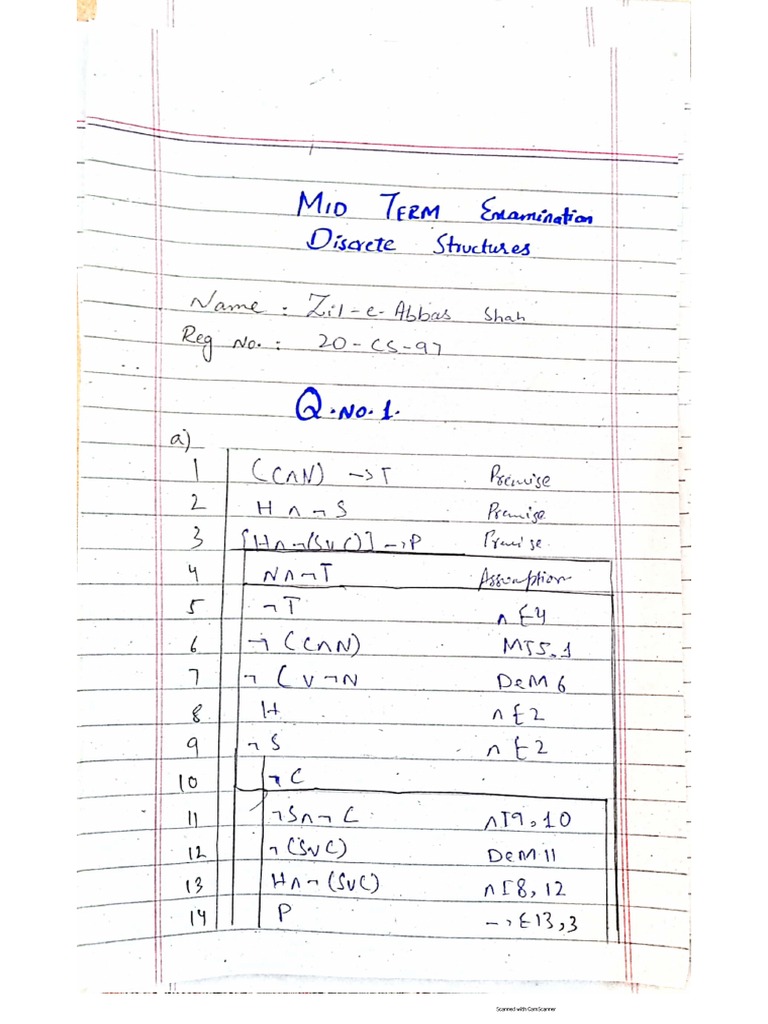 MID TERM Examination
Discrete Structures
Name : Zil-e-Abbas Shah
Reg No. : 20-CS-97
Q.No.1.
a)
1 (C∧N) → T Premise
2 H ∧ ¬S Premise
3 [H∧¬(S∨C)] → P Premise
4 N∧¬T Assumption
5 ¬T ∧E4
6 ¬(C∧N) MT5,1
7 ¬C∨¬N DeM 6
8 H ∧E2
9 ¬S ∧E2
10 ¬C
11 ¬S∧¬C ∧I9,10
12 ¬(S∨C) DeM 11
13 H∧¬(S∨C) ∧I8,12
14 P →E13,3
Scanned with CamScanner